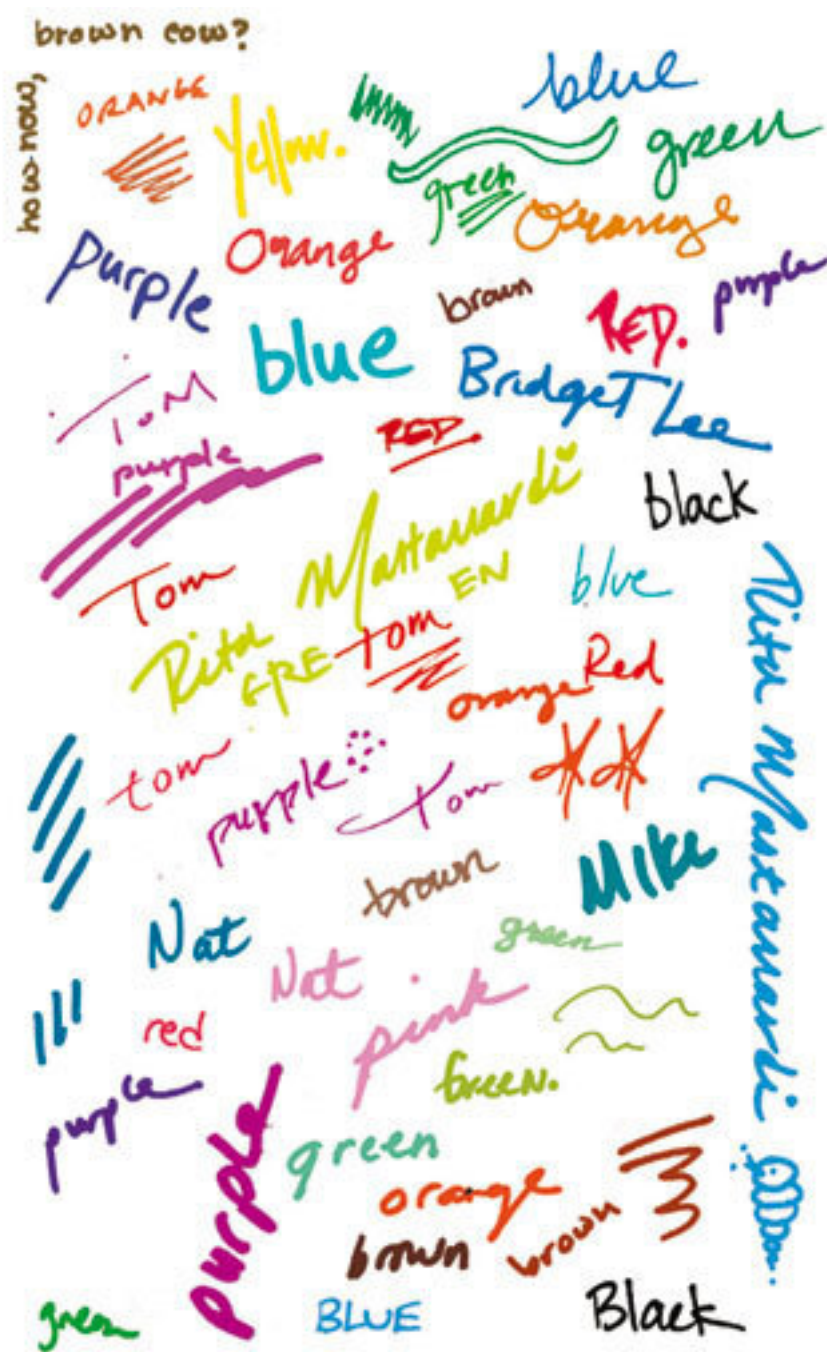 how now,
brown cow?
ORANGE
Yellow.
blue
green
green
Orange
purple
Orange
brown
RED.
purple
blue
TOM
BridgeT Lee
purple
RED.
black
Rita Mastanardi
Tom
GREEN
tom
blue
Red
orange
Rita Mastanardi
tom
purple
Tom
brown
MIke
Nat
Nat
green
red
pink
Green.
purple
purple
green
orange
brown
brown
green
BLUE
Black